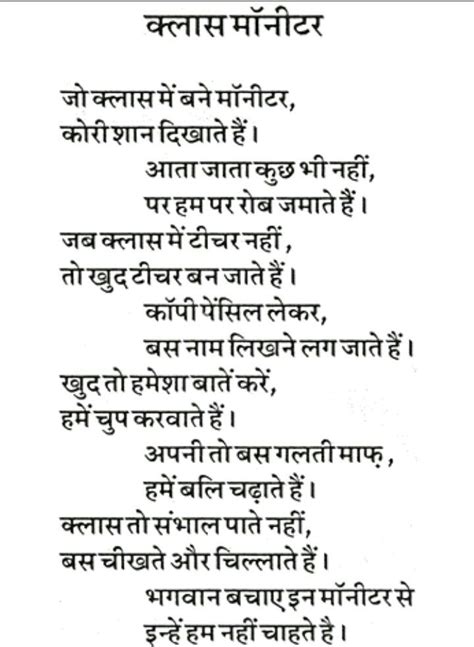 क्लास मॉनीटर
जो क्लास में बने मॉनीटर,
कोरी शान दिखाते हैं।
आता जाता कुछ भी नहीं,
पर हम पर रोब जमाते हैं।
जब क्लास में टीचर नहीं,
तो खुद टीचर बन जाते हैं।
कॉपी पेंसिल लेकर,
बस नाम लिखने लग जाते हैं।
खुद तो हमेशा बातें करें,
हमें चुप करवाते हैं।
अपनी तो बस गलती माफ़,
हमें बलि चढ़ाते हैं।
क्लास तो संभाल पाते नहीं,
बस चीखते और चिल्लाते हैं।
भगवान बचाए इन मॉनीटर से
इन्हें हम नहीं चाहते है।